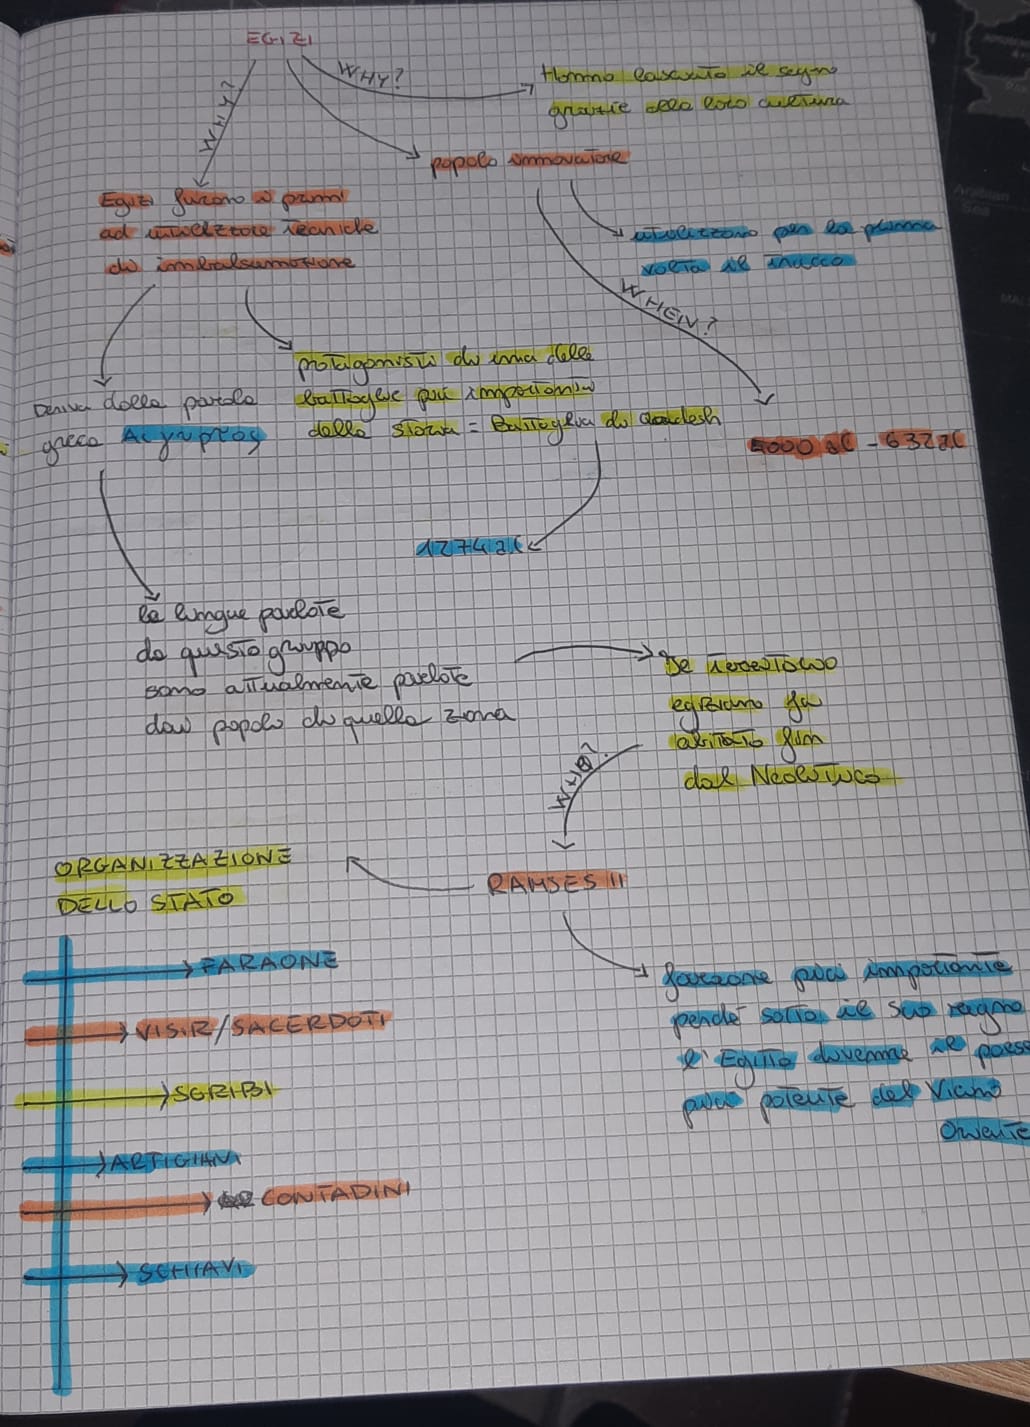 EGIZI
WHY?
Hanno lasciato il segno
grazie alla loro cultura
WHY?
popolo innovatore
Egizi furono i primi
ad utilizzare tecniche
di imbalsamazione
utilizzano per la prima
volta il trucco
WHEN?
protagonisti di una delle
battaglie più importanti
della storia = Battaglia di Qadesh
Deriva dalla parola
greca Aigyptos
4000 aC - 632 aC
1274 aC
le lingue parlate
da questo gruppo
sono attualmente parlate
dai popoli di quella zona
Il territorio
egiziano fu
abitato fin
dal Neolitico
WHO?
RAMSES II
ORGANIZZAZIONE
DELLO STATO
FARAONE
VISIR/SACERDOTI
SCRIBI
ARTIGIANI
CONTADINI
SCHIAVI
faraone più importante
perché sotto il suo regno
l'Egitto divenne il paese
più potente del Vicino
Oriente